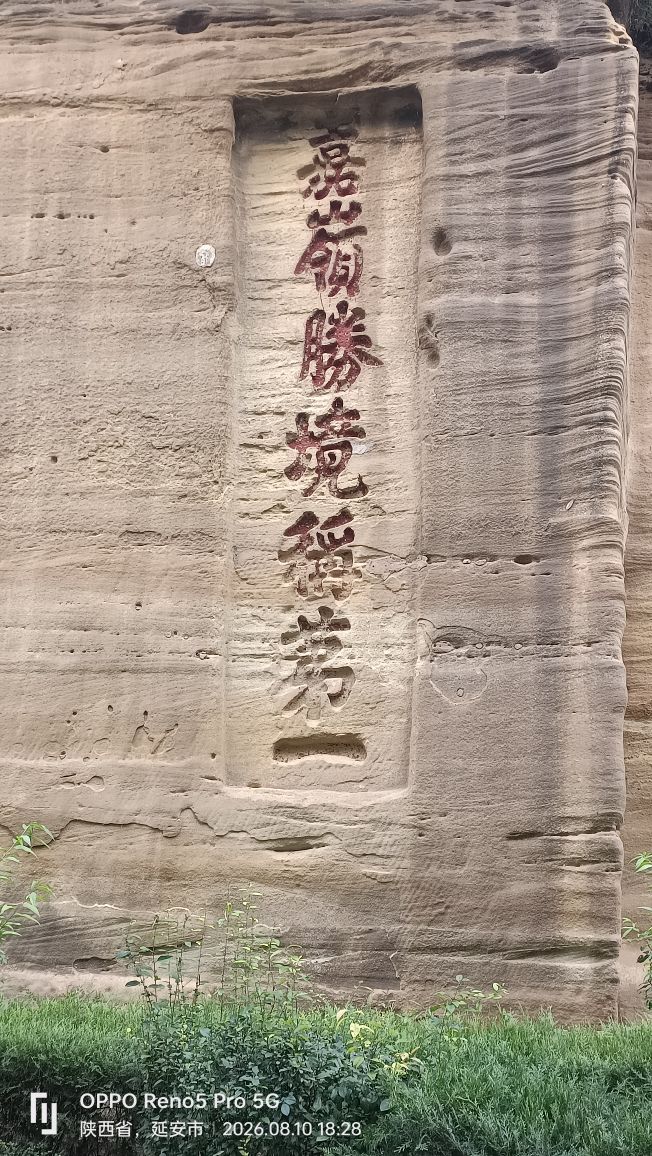 嘉嶺勝境稱第一
OPPO Reno5 Pro 5G
陕西省，延安市 | 2026.08.10 18:28